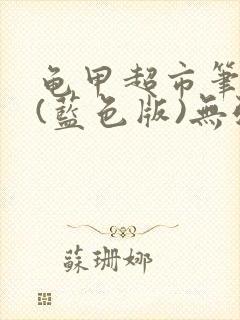 龟甲超市筆
(藍色版)無
蘇珊娜